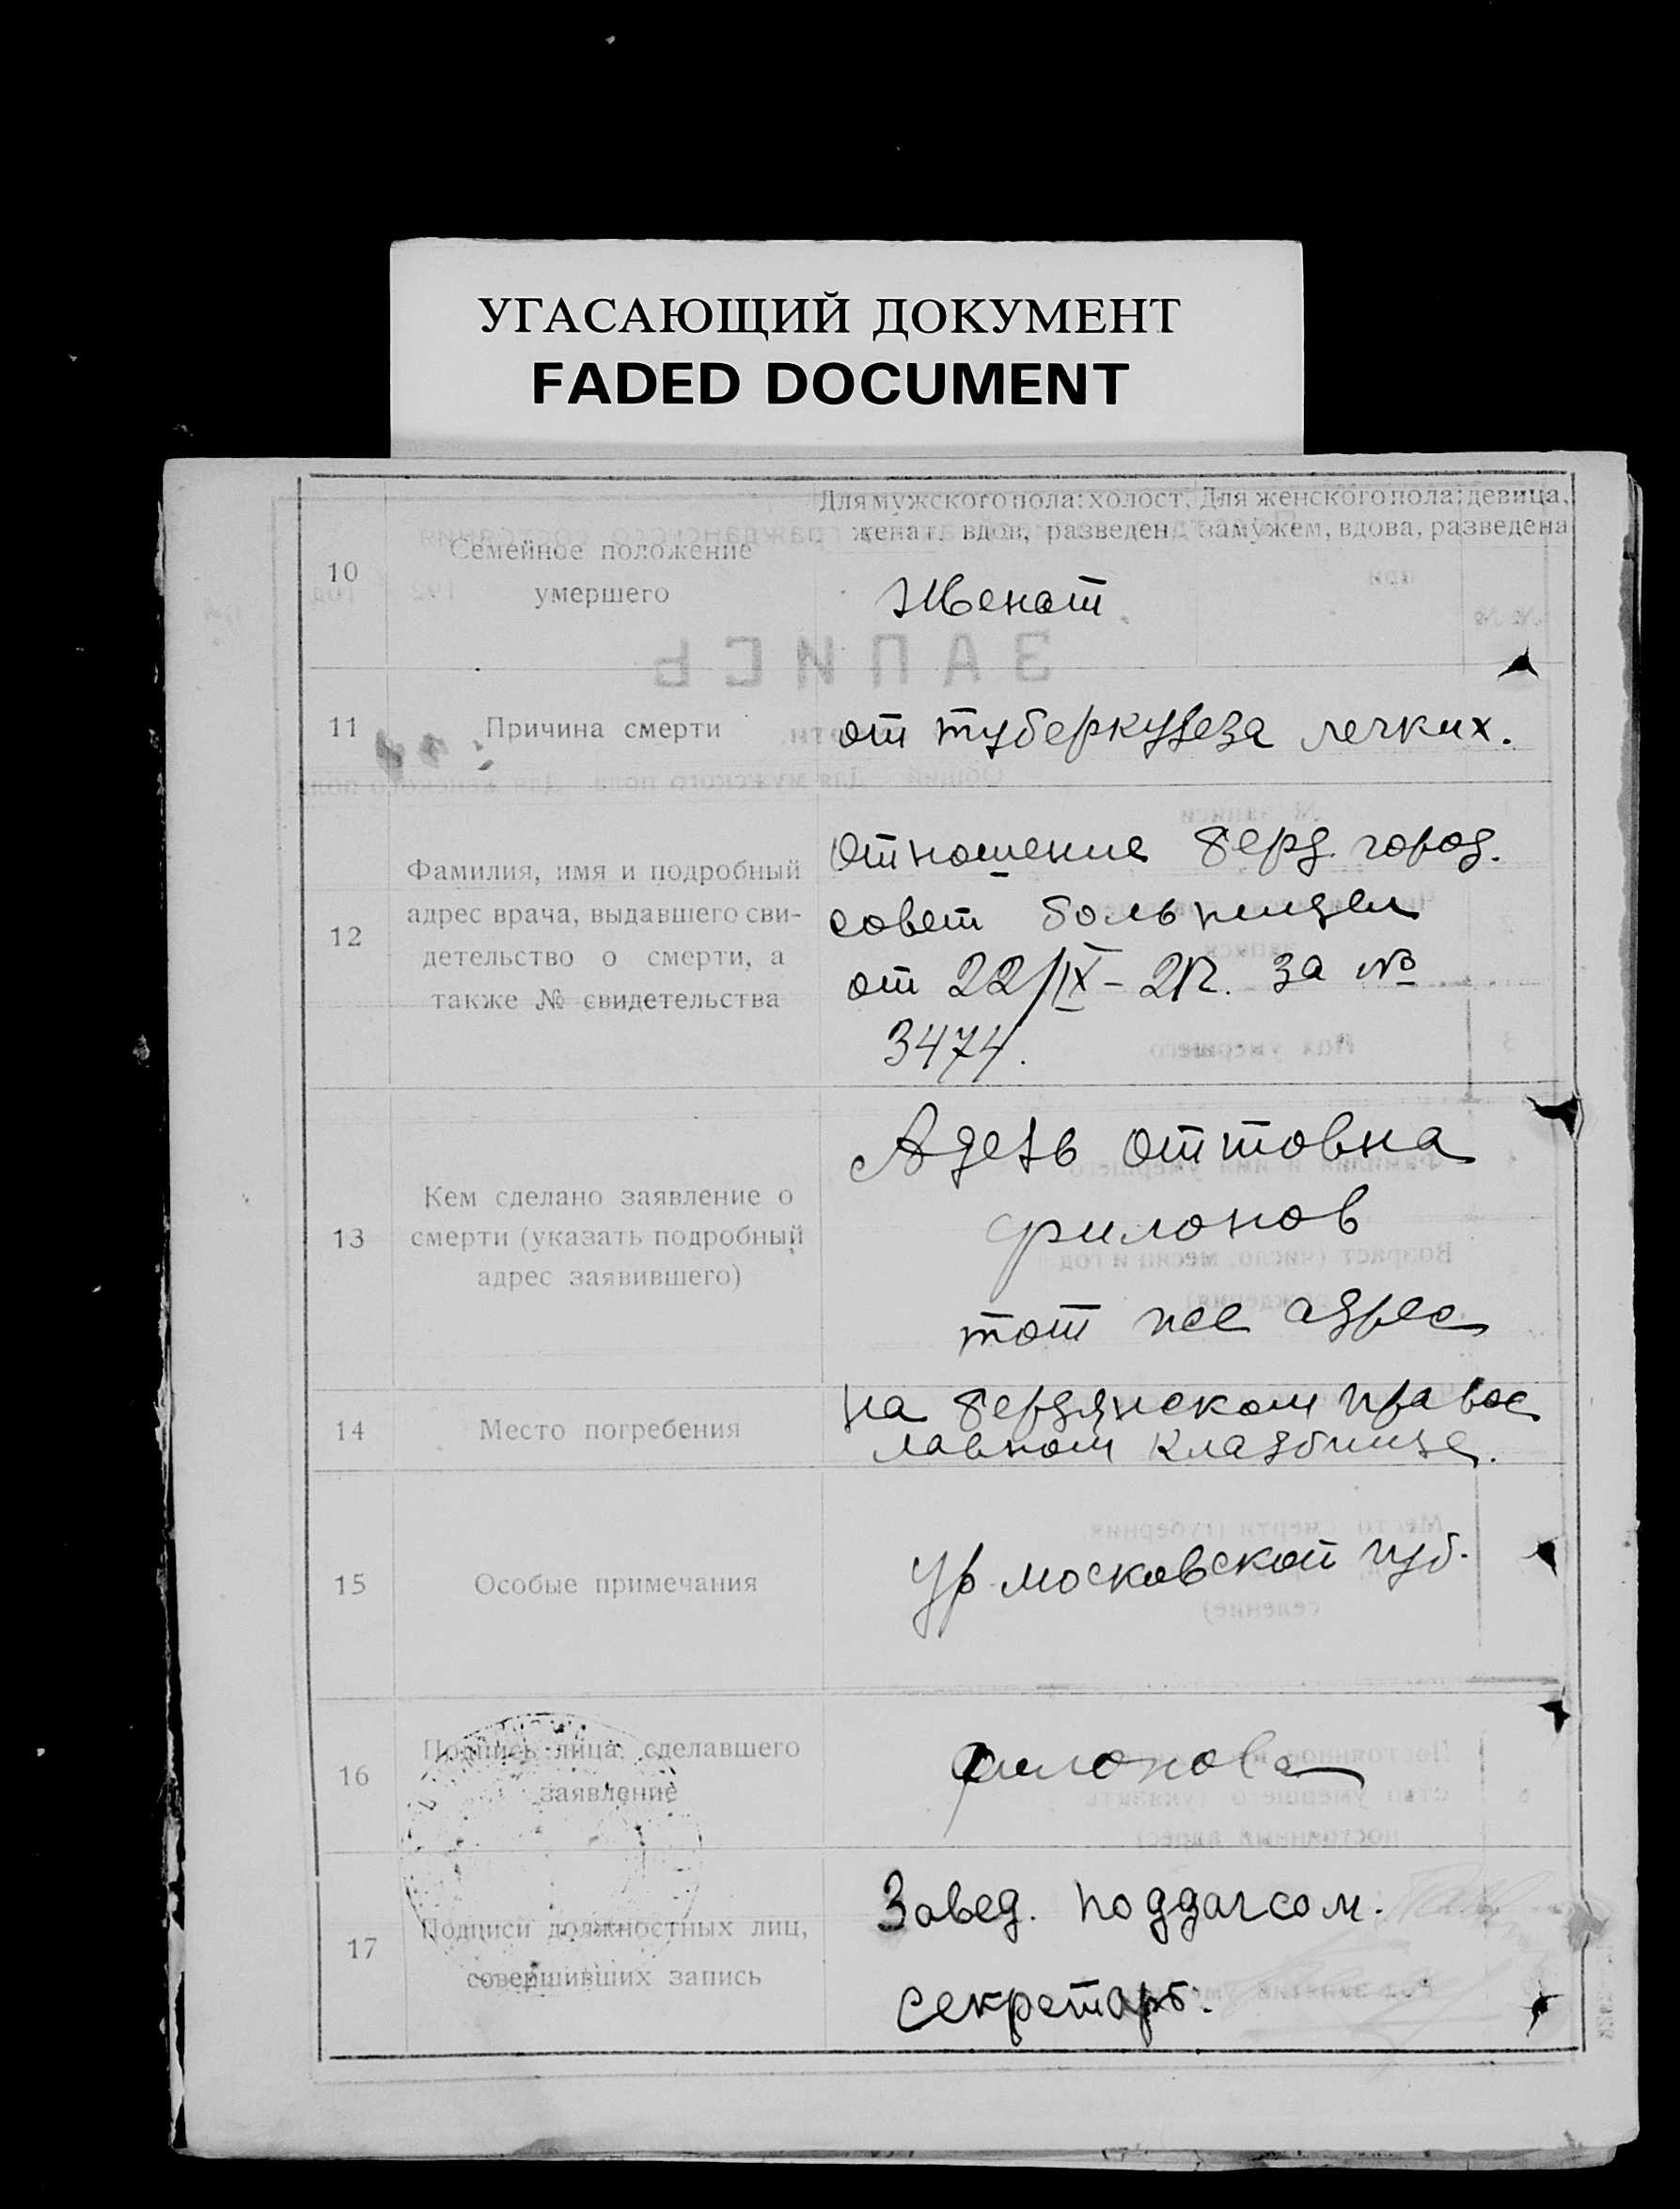 УГАСАЮЩИЙ ДОКУМЕНТ
FADED DOCUMENT
10
Семейное положение
умершего
Для мужского пола: холост, женат, вдов, разведен
Для женского пола: девица, замужем, вдова, разведена
Женат
11
Причина смерти
от туберкулеза легких.
12
Фамилия, имя и подробный
адрес врача, выдавшего сви-
детельство о смерти, а
также № свидетельства
Отношение берд. город.
совет больницы
от 22/IX – 21г. за №
3474.
13
Кем сделано заявление о
смерти (указать подробный
адрес заявившего)
Адель Оттовна
Филонов
тот же адрес
14
Место погребения
на бердянском правос
лавном кладбище.
15
Особые примечания
Ур московской губ.
16
Подпись лица, сделавшего
заявление
Филонова
17
Подписи должностных лиц,
совершивших запись
Завед. поддагсом.
секретарь.
ЗАПИСЬ